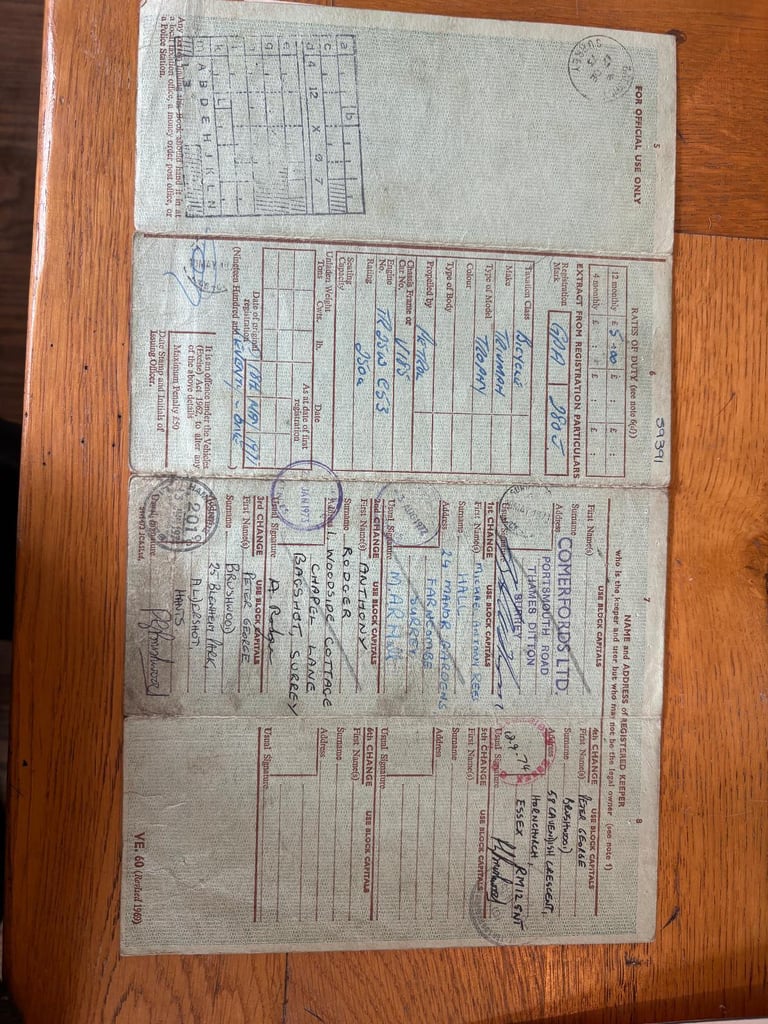 5
FOR OFFICIAL USE ONLY
a
b
c
d 4 12 X 9 7
e
g
k L
m A B D E H J K L N
Any person finding this Book should hand it in at
a local taxation office, a money order post office, or
a Police Station.
6
59391
RATES OF DUTY (see note 6(d))
12 monthly £ 5.00 : £ : £ :
4 monthly £ : £ : £ :
EXTRACT FROM REGISTRATION PARTICULARS
Registration
Mark
280 J
Taxation Class BICYCLE
Make TRIUMPH
Type of Model TROPHY
Colour
Type of Body
Propelled by PETROL
Chassis Frame or
Car No.
Engine
No. TR25W
Rating 250cc
Seating
Capacity
Unladen Weight
Tons Cwt. lb. Date
As at date of first
registration
Date of original
registration 1st MAY 1971
(Nineteen Hundred and SEVENTY - ONE)
It is an offence under the Vehicles
(Excise) Act 1962, to alter any
of the above details
Maximum Penalty £50
Date Stamp and Initials of
Issuing Officer.
7
NAME and ADDRESS of REGISTERED KEEPER
who is the keeper and user but who may not be the legal owner (see note 1)
USE BLOCK CAPITALS
First Name(s)
Surname
Address
COMERFORDS LTD.
PORTSMOUTH ROAD
THAMES DITTON
SURREY
1st CHANGE USE BLOCK CAPITALS
First Name(s)
Surname HALL
Address 24 MANOR GARDENS
FARNCOMBE
SURREY
Usual Signature
2nd CHANGE USE BLOCK CAPITALS
First Name(s) ANTHONY
Surname RODGER
Address 1, WOODSIDE COTTAGE
CHAPEL LANE
BAGSHOT, SURREY
JAN 1973
Usual Signature
3rd CHANGE USE BLOCK CAPITALS
First Name(s) PETER GEORGE
Surname BRUSHWOOD
Address 25 BLENHEIM PARK,
ALDERSHOT,
HANTS
Usual Signature
8
4th CHANGE USE BLOCK CAPITALS
First Name(s) PETER GEORGE
Surname BRUSHWOOD
Address 58 CAVENDISH CRESCENT,
HORNCHURCH,
ESSEX RM12 5NT
12.9.74
Usual Signature
5th CHANGE USE BLOCK CAPITALS
First Name(s)
Surname
Address
Usual Signature
6th CHANGE USE BLOCK CAPITALS
First Name(s)
Surname
Address
Usual Signature
VE. 60 (Revised 1969)